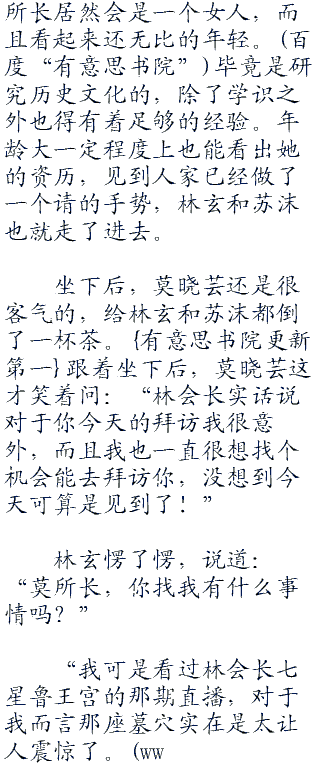 所长居然会是一个女人，而
且看起来还无比的年轻。(百
度“有意思书院”)毕竟是研
究历史文化的，除了学识之
外也得有着足够的经验。年
龄大一定程度上也能看出她
的资历，见到人家已经做了
一个请的手势，林玄和苏沫
也就走了进去。
坐下后，莫晓芸还是很
客气的，给林玄和苏沫都倒
了一杯茶。{有意思书院更新
第一}跟着坐下后，莫晓芸这
才笑着问：“林会长实话说
对于你今天的拜访我很意
外，而且我也一直很想找个
机会能去拜访你，没想到今
天可算是见到了！”
林玄愣了愣，说道：
“莫所长，你找我有什么事
情吗？”
“我可是看过林会长七
星鲁王宫的那期直播，对于
我而言那座墓穴实在是太让
人震惊了。(ww